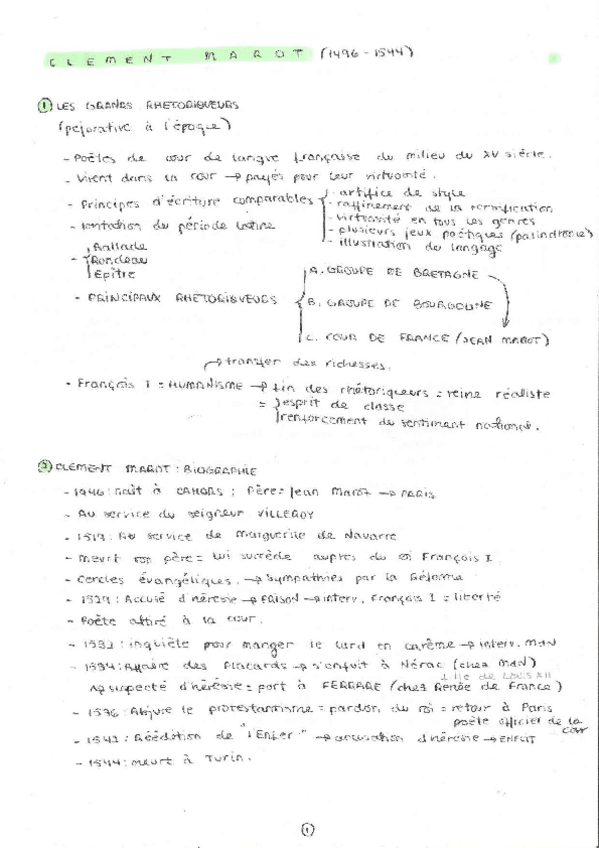 CLEMENT MAROT (1496-1544)
① LES GRANDS RHETORIQUEURS
(péjorative à l'époque)
- Poètes de cour de langue française du milieu du XV siècle.
- Vivent dans la cour → payés pour leur virtuosité.
- Principes d'écriture comparables { - artifice de style
- raffinement de la versification
- virtuosité en tous les genres
- plusieurs jeux poétiques (palindromes)
- illustration du langage
- Imitation du période latine
- { Ballade
Rondeau
Epître
- PRINCIPAUX RHETORIQUEURS { A. GROUPE DE BRETAGNE
B. GROUPE DE BOURGOGNE
C. COUR DE FRANCE (JEAN MAROT)
→ transfer des richesses.
- François I = HUMANISME → fin des rhétoriqueurs = reine réaliste
= { esprit de classe
renforcement du sentiment national.
② CLEMENT MAROT : BIOGRAPHIE
- 1946 : naît à CAHORS ; Père = Jean Marot → PARIS
- Au service du seigneur VILLEROY
- 1519 : Au service de Marguerite de Navarre
- Meurt son père = lui succède auprès du roi François I.
- Cercles évangéliques. → Sympathies par la Réforme
- 1529 : Accusé d'hérésie → PRISON → interv. François I = liberté
- Poète attiré à la cour.
- 1532 : inquiète pour manger le lard en carême → interv. MdN
- 1534 : Affaire des Placards → s'enfuit à Nérac (chez MdN)
fille de LOUIS XII
↳ suspecté d'hérésie = part à FERRARE (chez Renée de France)
- 1536 : Abjure le protestantisme = pardon du roi = retour à Paris
poète officiel de la cour
- 1542 : Réédition de "l'Enfer" → accusation d'hérésie →
- 1544 : meurt à Turin.
①